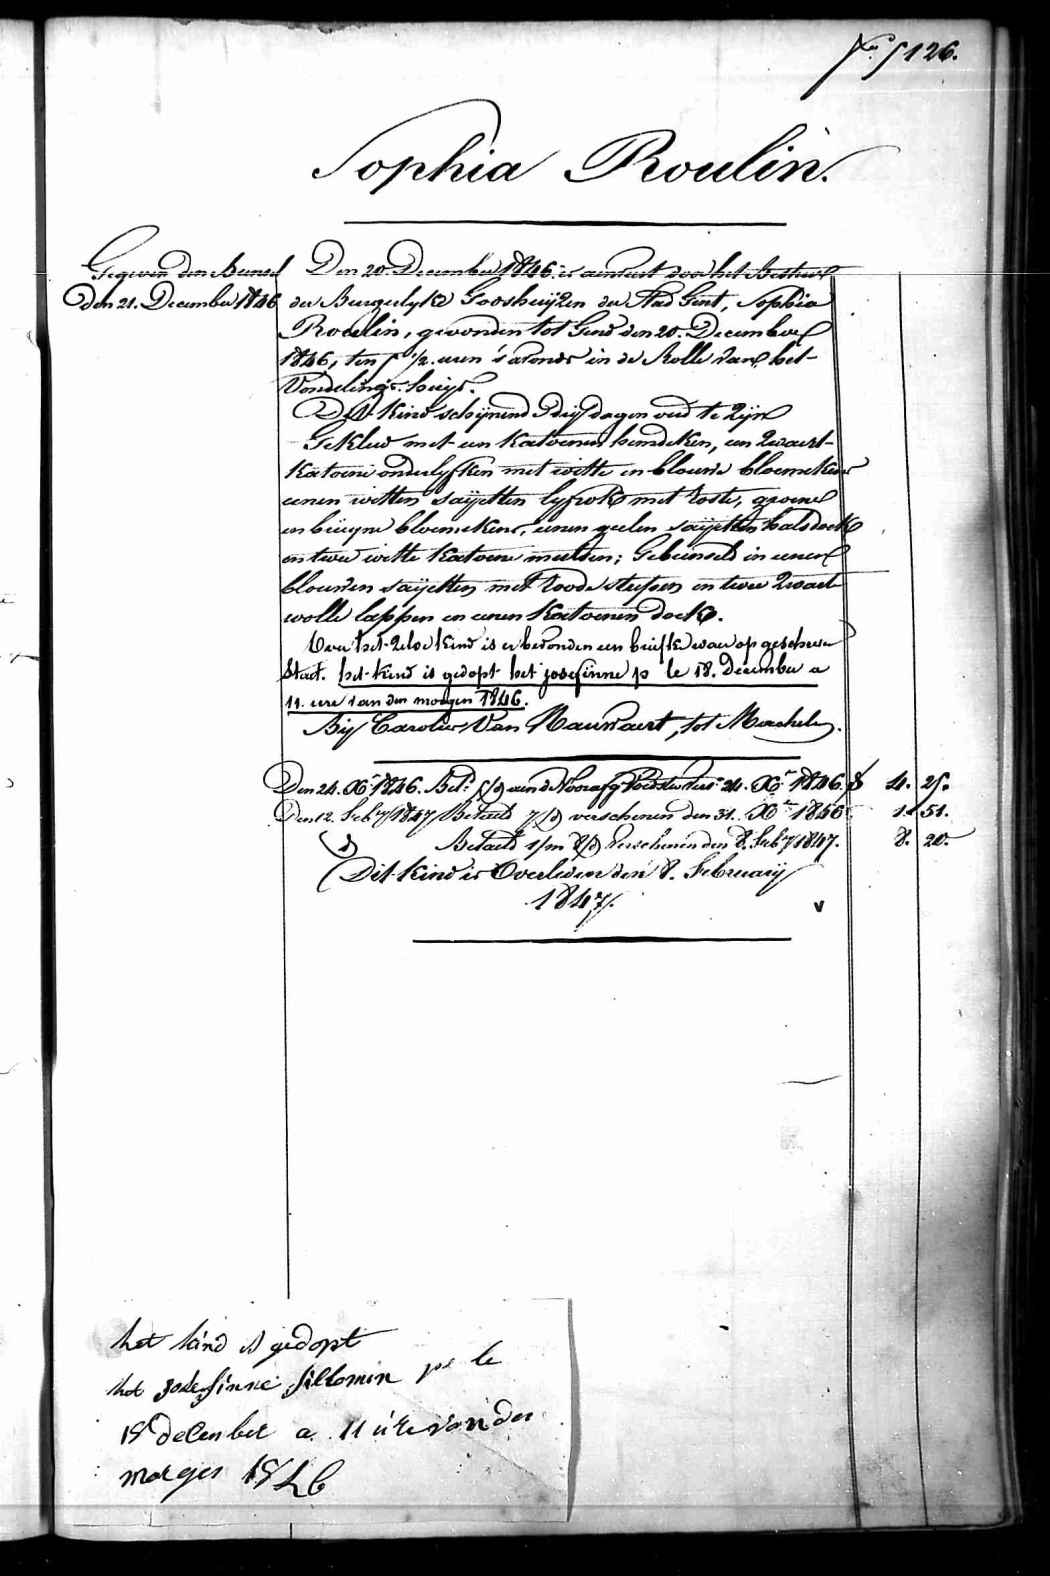 126.
Sophia Roulin.
Gegeven den Bunsel
Den 21. December 1846
Den 20. December 1846 is aenveert door het Bestuer
der Burgelyke Godshuijzen der Stad Gent, Sophia
Roulin, gevonden tot Gend den 20. December
1846, ten 5 1/2 uren s'avonds in de Rolle van het
Vondelings-huijs.
Dit kind schijnend drij dagen oud te zijn
Gekleed met een katoenen hemdeken, een zwaert
katoene onderlyfken met witte en blouwe bloemekens
eenen witten saijetten lyfrok met roste, groene
en bruyne bloemekens, eenen geelen saijetten halsdoek
en twee witte katoene mutsen; Gebunseld in eenen
blouwen saijetten met roode streepen en twee zwarte
wolle lappen en eenen katoenen doek.
Over het zelve kind is er bevonden een briefke waer op geschreven
staet. het kind is gedopt het josefinne p le 18. december a
11. ure van den morgen 1846.
Bij Carolus Van Mauwaert, tot Machelen.
Den 24. Xr 1846. Bet. aen de Voorafg 24. Xr 1846. 4. 25.
Den 12. Feby 1847 Betaeld verschenen den 31. Xr 1846 1. 51.
Betaeld 1/m 8/d verschenen den 8. Feby 1847. 8. 20.
Dit kind is Overleden den 8. February
1847.
het kind is gedopt
het josefinne fillomin p le
18 december a 11 ure van der
morgen 1846